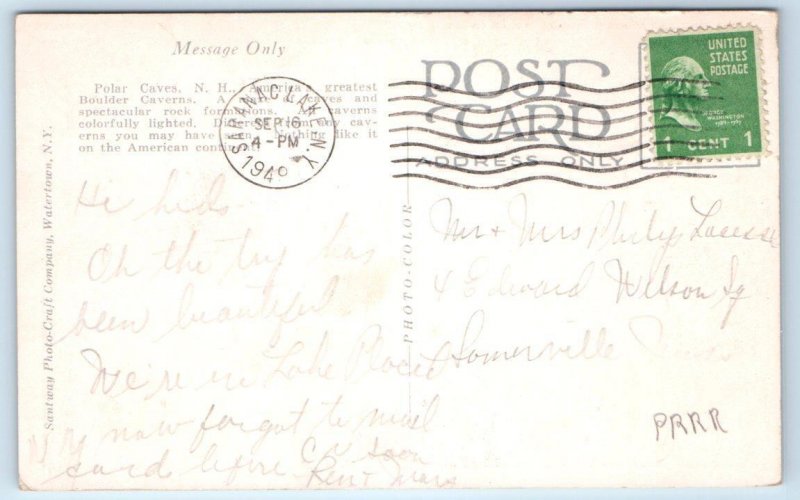 Message Only
Polar Caves, N. H., America's greatest
Boulder Caverns. A caves and
spectacular rock formations. All caverns
colorfully lighted. Different from any cav-
erns you may have seen. Nothing like it
on the American
SARANAC LAKE N.Y.
SEP 6
4-PM
1949
POST
CARD
ADDRESS ONLY
UNITED
STATES
POSTAGE
GEORGE
WASHINGTON
1789-1797
1 CENT 1
Santway Photo-Craft Company, Watertown, N.Y.
PHOTO-COLOR
Hi kids
Oh the trip has
been beautiful
We're in Lake Placid
N Y now forgot to mail
card before C U soon
Ken + Mary
Mr + Mrs Philip
4 Edward Wilson Sq
Somerville Mass
PRRR